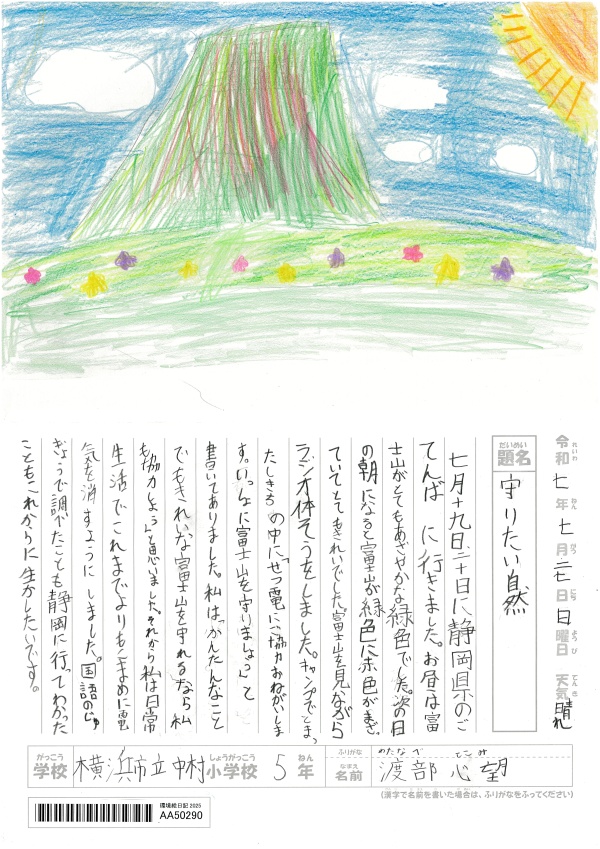 令和七年七月二七日日曜日 天気 晴れ
れいわ ねん がつ にち ようび てんき
だいめい
題名 守りたい自然
七月十九日二十日に静岡県のご
てんばに行きました。お昼は富
士山がとてもあざやかな緑色でした。次の日
の朝になると富士山が緑色に赤色がまざっ
ていてとてもきれいでした。富士山を見ながら
ラジオ体そうをしました。キャンプでとまっ
たしきちの中に「せつ電にご協力おねがいしま
す。いっしょに富士山を守りましょう」と
書いてありました。私は「かんたんなこと
でもきれいな富士山を守れるなら私
も協力しよう」と思いました。それから私は日常
生活でこれまでよりもこまめに電
気を消すようにしました。国語のじゅ
ぎょうで調べたことも静岡に行ってわかった
こともこれからに生かしたいです。
がっこう 学校 横浜市立中村 しょうがっこう 小学校 5 ねん 年
ふりがな わたなべ ここみ
なまえ 名前 渡部 心望
(漢字で名前を書いた場合は、ふりがなをふってください)
環境絵日記 2025
AA50290